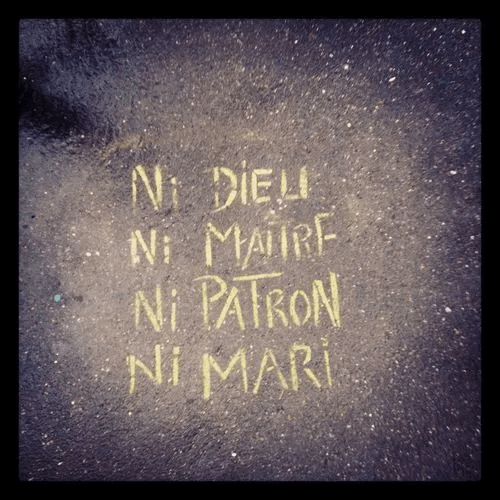 Ni DiEU
Ni MAITRE
Ni PATRON
Ni MARi